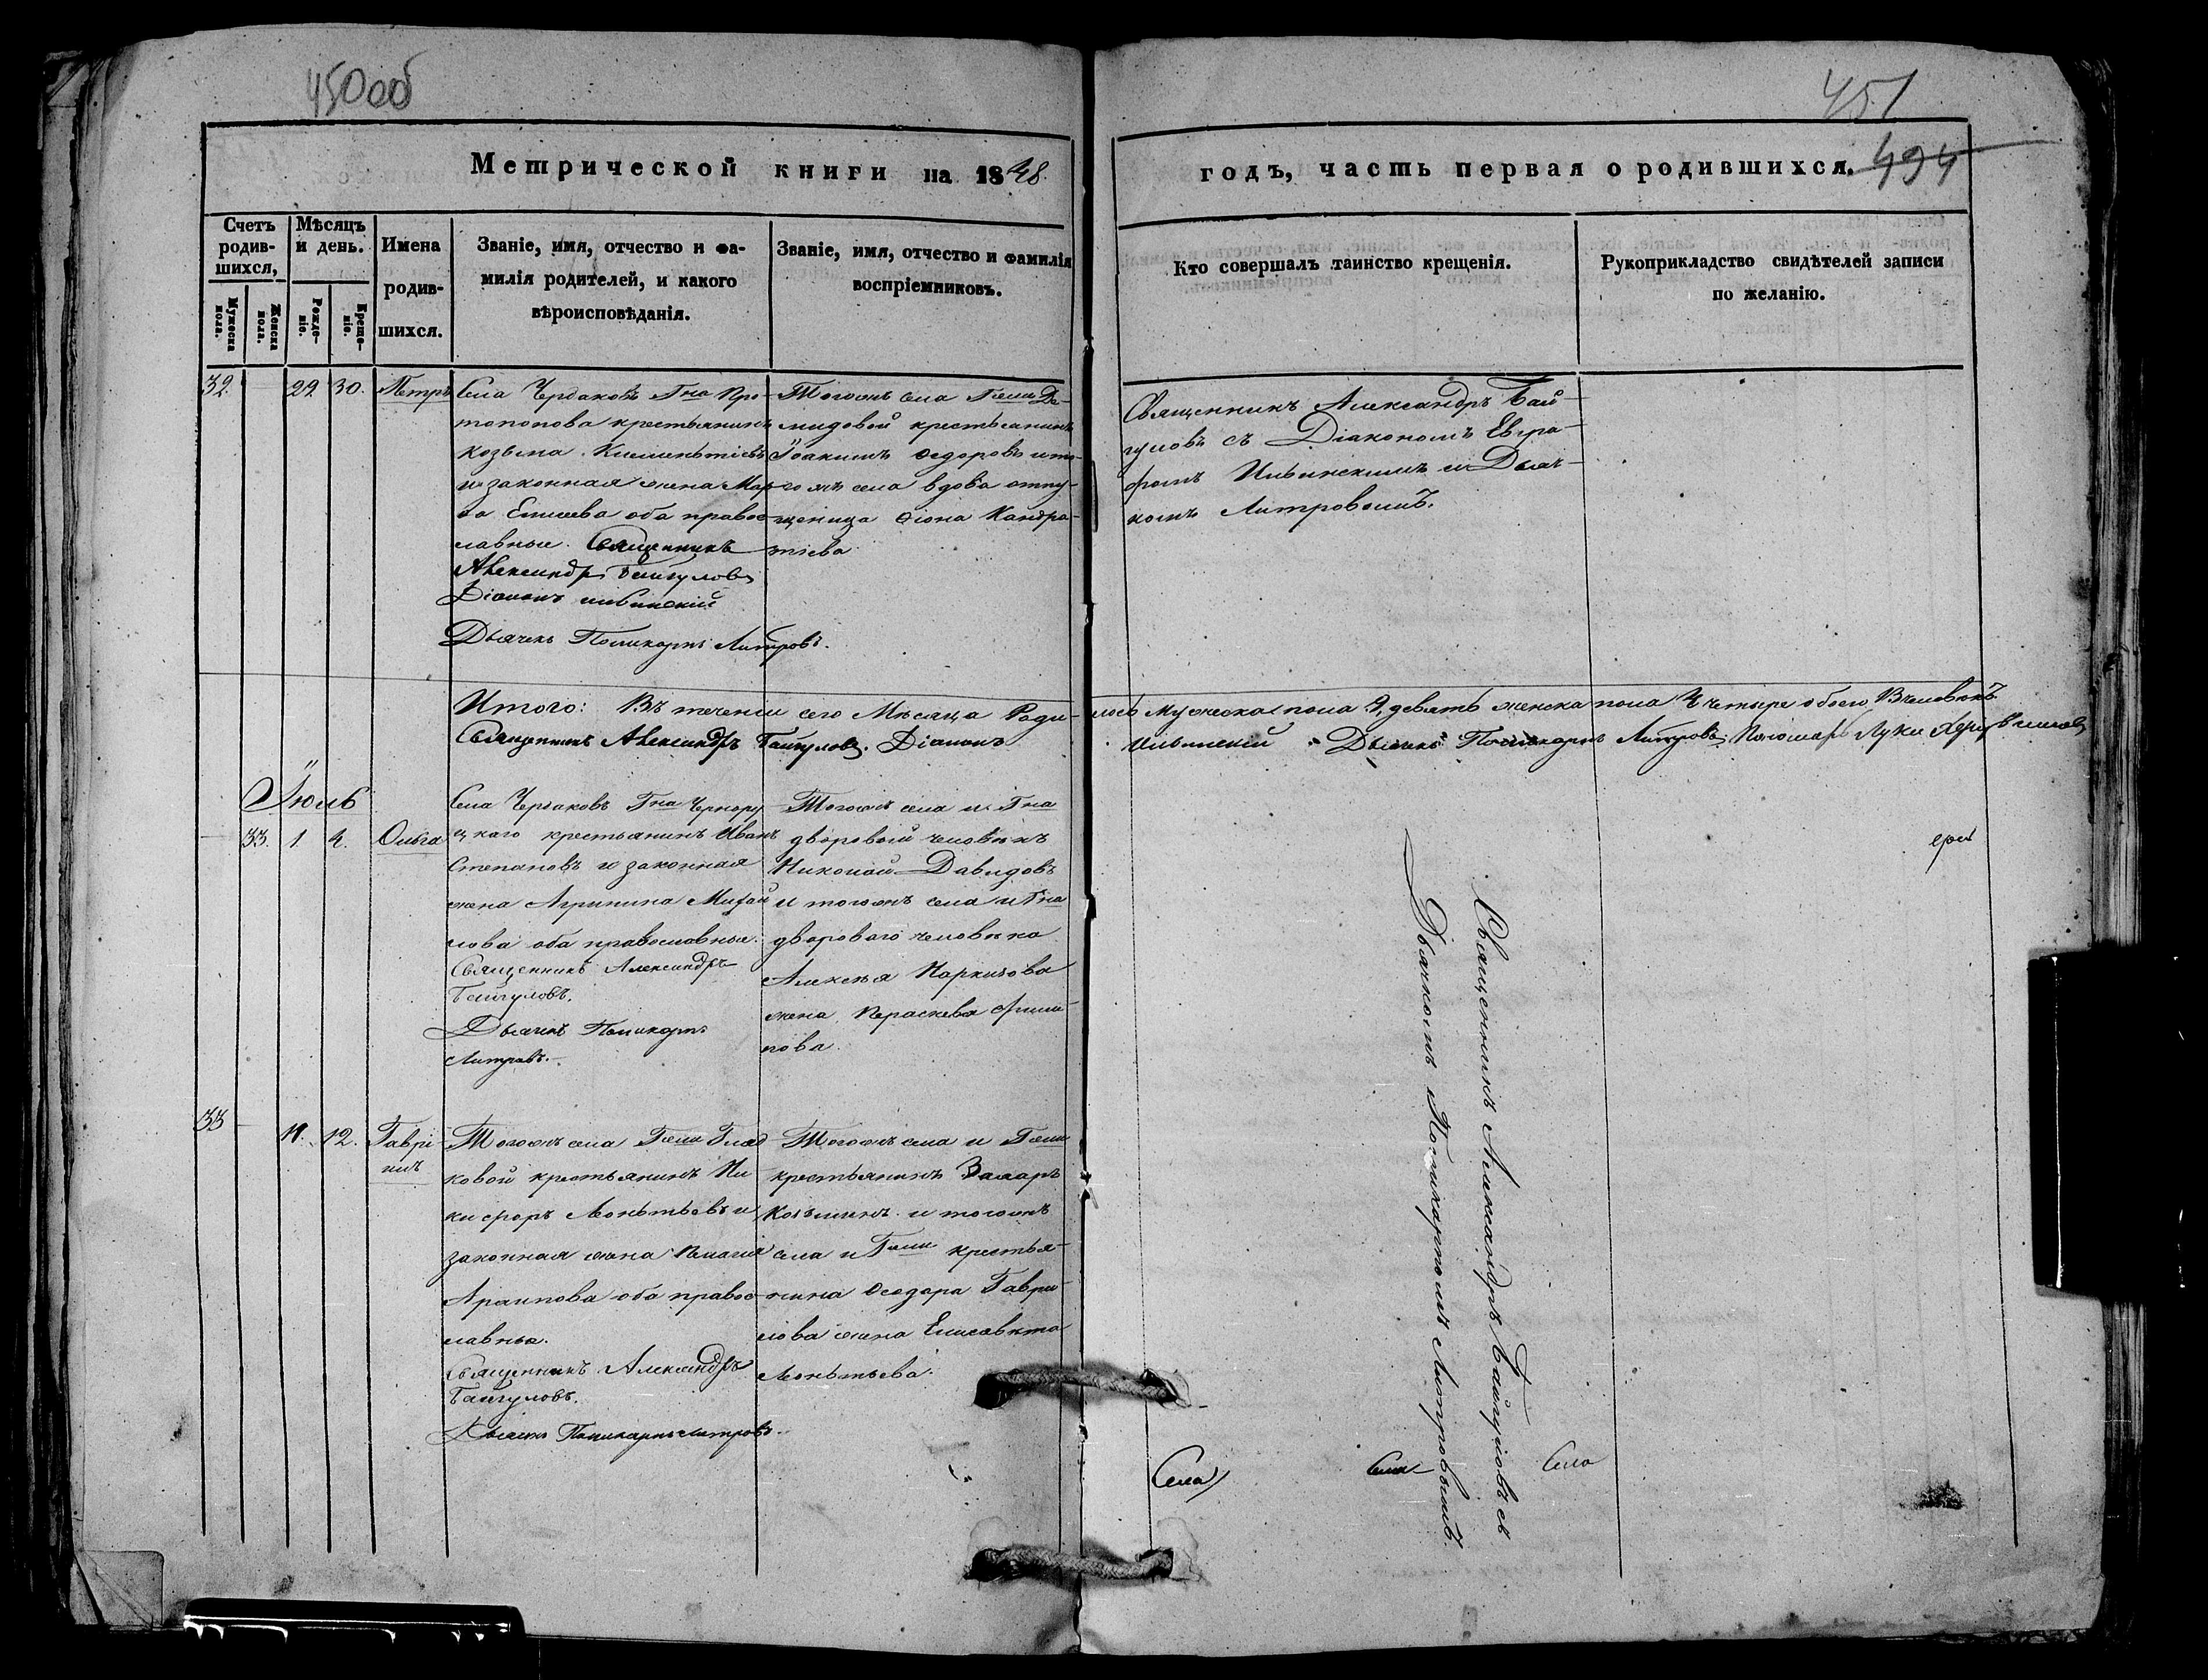 450об
451
494
Метрической книги на 1848.
годъ, часть первая о родившихся.
Счетъ родив-шихся,
Мѣсяцъ и день.
Имена родив-шихся.
Званіе, имя, отчество и фа-
милія родителей, и какого
вѣроисповѣданія.
Званіе, имя, отчество и фамилія
воспріемниковъ.
Кто совершалъ таинство крещенія.
Рукоприкладство свидѣтелей записи
по желанію.
Мужеска пола.
Женска пола.
Рожде-ніе.
Креще-ніе.
32. 29 30. Петръ
Села Чердаковъ Гна Про-
топопова крестьянинъ
Козьма Климентьевъ
и законная жена Мар-
ѳа Елисеева оба правос-
лавные. Священникъ
Александръ Байгуловъ
Діаконъ Ильинскій
Дьячекъ Поликарпъ Литровъ.
Тогожъ села Гжи Де-
мидовой крестьянинъ
Іоакимъ Ѳедоровъ и то-
гожъ села вдова отпу-
щеница Ѳіона Кандра-
тіева
Священникъ Александръ Бай-
гуловъ съ Діакономъ Евгра-
фомъ Ильинскимъ и Дьяч-
комъ Литровымъ.
Итого: Въ теченіи сего Мѣсяца Роди-
лось мужеска пола 9, девять женска пола 4 четыре обоего 13 человѣкъ
Священникъ Александръ Байгуловъ. Діаконъ
Ильинскій Дьячекъ Поликарпъ Литровъ. Пономарь Лука
Іюль
33. 1 4. Ольга
Села Чердаковъ Гна Черкору-
цкаго крестьянинъ Иванъ
Степановъ и законная
жена Агрипина Михай-
лова оба православные.
Священникъ Александръ
Байгуловъ.
Дьячекъ Поликарпъ
Литровъ.
Тогожъ села и Гна
дворовой человѣкъ
Николай Давидовъ
и тогожъ села и Гна
дворового человѣка
Алексѣя
жена Параскева Фили-
пова.
33 11. 12. Гаври-
илъ
Тогожъ села Гжи Глад-
ковой крестьянинъ Ни-
кифоръ Леонтьевъ и
законная жена Пелагія
Архипова оба правос-
лавные.
Священникъ Александръ
Байгуловъ.
Дьячекъ Поликарпъ Литровъ.
Тогожъ села и Гжи
крестьянинъ Захаръ
Козьминъ и тогожъ
села и Гжи крестья-
нина Ѳеодора Гаври-
лова жена Елисавета
Леонтьева.
Священникъ Александръ Байгуловъ съ
Дьячкомъ Поликарпомъ Литровымъ.
Села
Села
Села